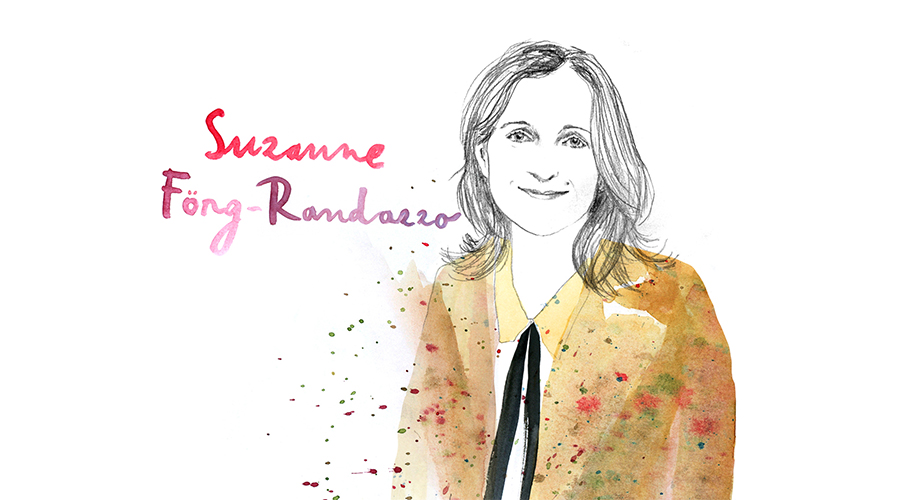 Suzanne
Förg-Randazzo